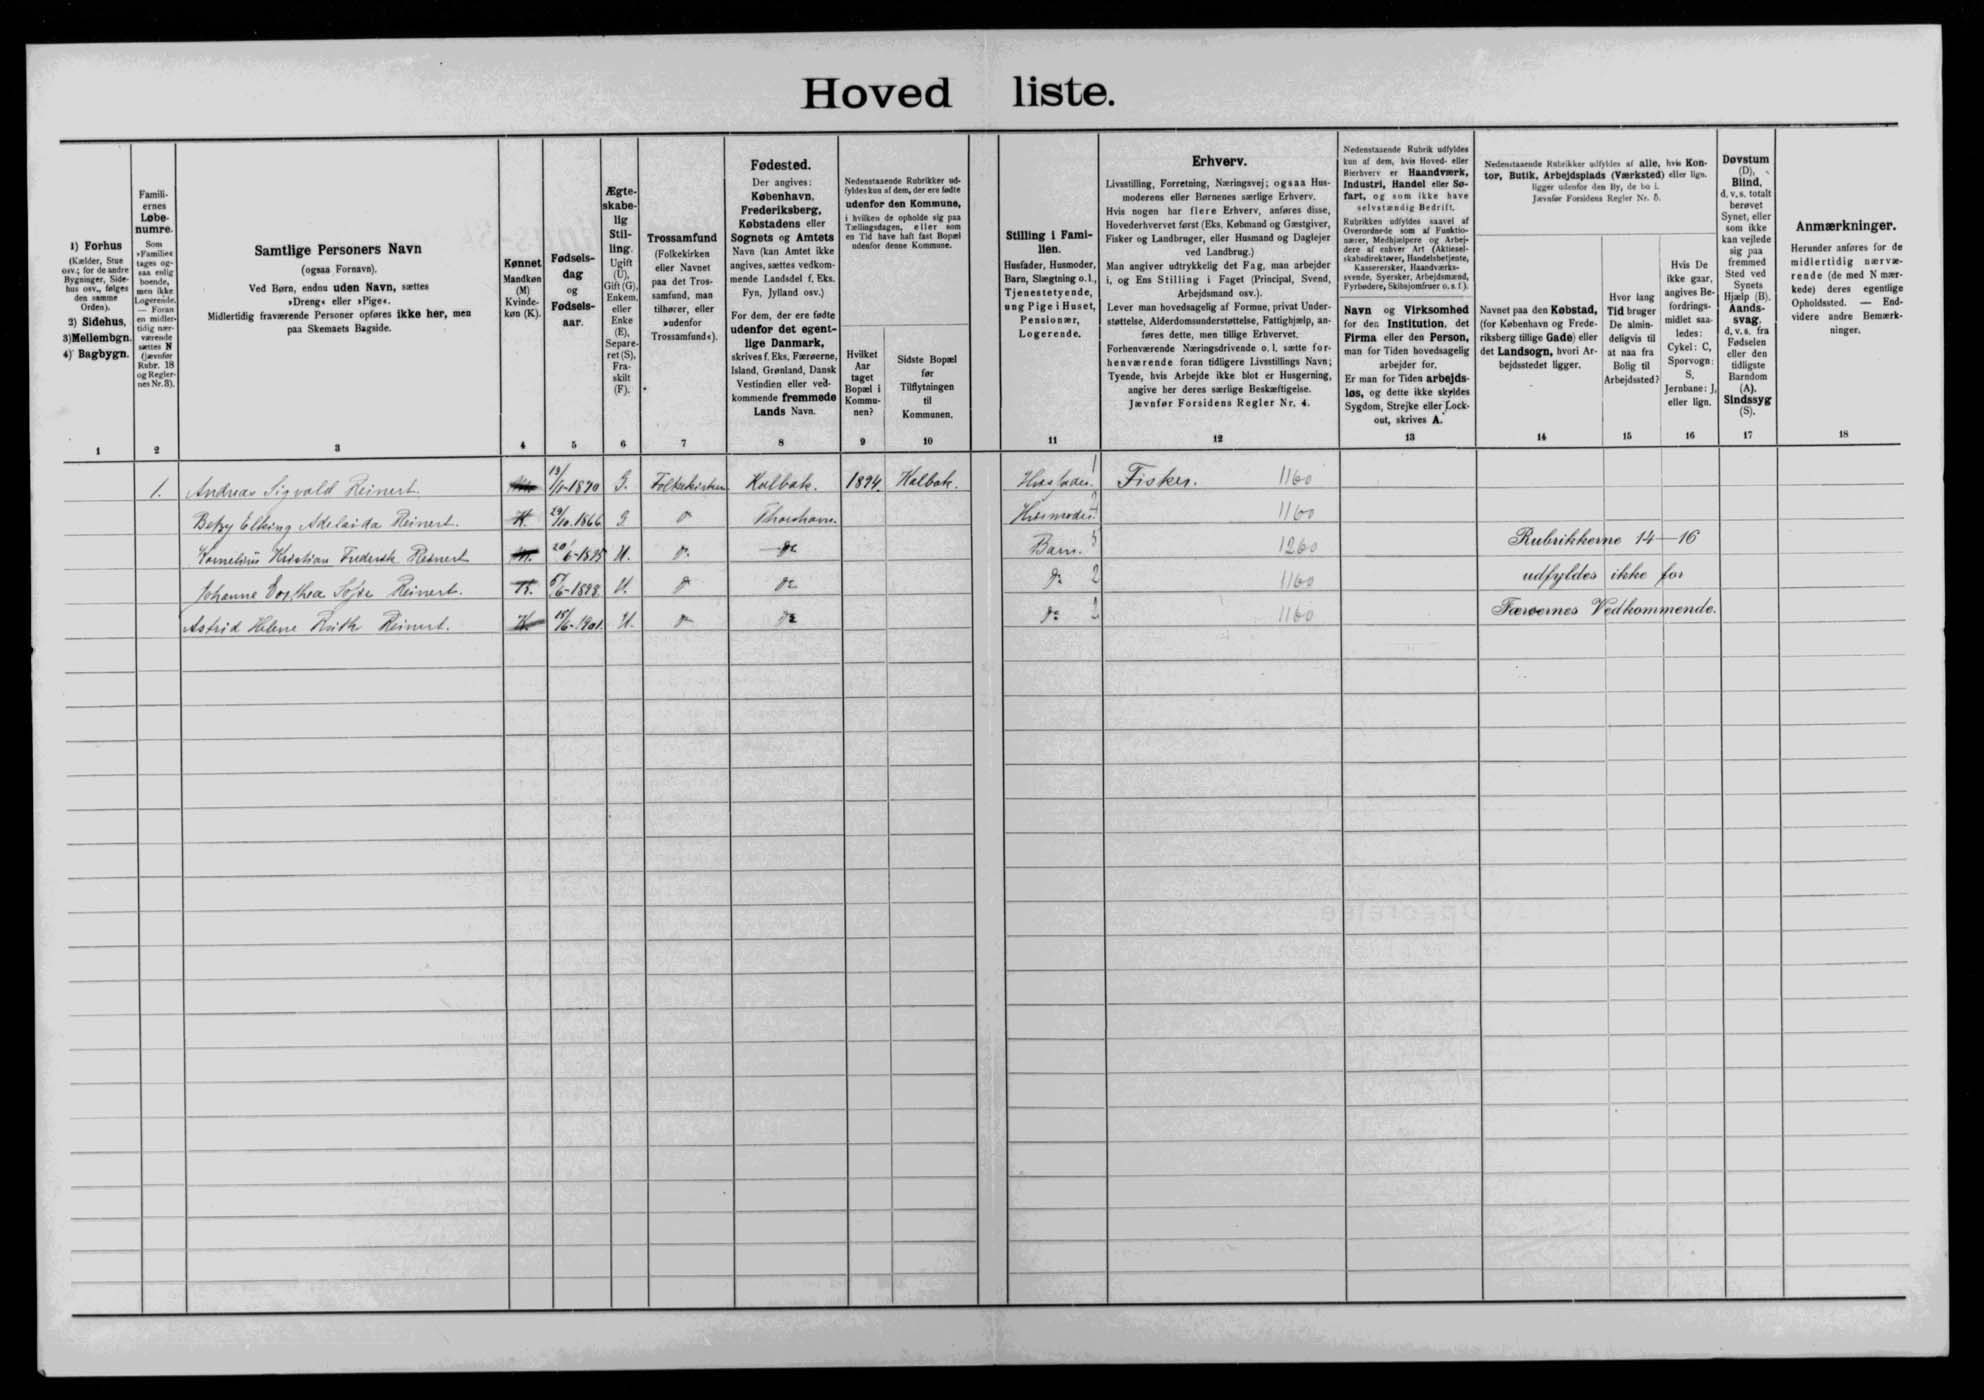 Hovedliste.
1) Forhus
(Kælder, Stue
osv.; for de andre
Bygninger, Side-
hus osv., følges
den samme
Orden).
2) Sidehus,
3) Mellembgn.
4) Bagbygn.
1
Famili-
ernes
Løbe-
numre.
Som
»Familie«
tages og-
saa enlig
boende,
men ikke
Logerende.
— Foran
en midler-
tidig nær-
værende
sættes N
(jævnfør
Rubr. 18
og Regler-
nes Nr. 3).
2
Samtlige Personers Navn
(ogsaa Fornavn).
Ved Børn, endnu uden Navn, sættes
»Dreng« eller »Pige«.
Midlertidig fraværende Personer opføres ikke her, men
paa Skemaets Bagside.
3
Kønnet
Mandkøn
(M)
Kvinde-
køn (K).
4
Fødsels-
dag
og
Fødsels-
aar.
5
Ægte-
skabe-
lig
Stil-
ling.
Ugift
(U),
Gift (G),
Enkem.
eller
Enke
(E),
Separe-
ret (S),
Fra-
skilt
(F).
6
Trossamfund
(Folkekirken
eller Navnet
paa det Tros-
samfund, man
tilhører, eller
»udenfor
Trossamfund«).
7
Fødested.
Der angives:
København,
Frederiksberg,
Købstadens eller
Sognets og Amtets
Navn (kan Amtet ikke
angives, sættes vedkom-
mende Landsdel f. Eks.
Fyn, Jylland osv.)
For dem, der ere fødte
udenfor det egent-
lige Danmark,
skrives f. Eks. Færøerne,
Island, Grønland, Dansk
Vestindien eller ved-
kommende fremmede
Lands Navn.
8
Nedenstaaende Rubrikker ud-
fyldes kun af dem, der ere fødte
udenfor den Kommune,
i hvilken de opholde sig paa
Tællingsdagen, eller som
en Tid have haft fast Bopæl
udenfor denne Kommune.
Hvilket
Aar
taget
Bopæl i
Kommu-
nen?
9
Sidste Bopæl
før
Tilflytningen
til
Kommunen.
10
Stilling i Fami-
lien.
Husfader, Husmoder,
Barn, Slægtning o.l.,
Tjenestetyende,
ung Pige i Huset,
Pensionær,
Logerende.
11
Erhverv.
Livsstilling, Forretning, Næringsvej; ogsaa Hus-
moderens eller Børnenes særlige Erhverv.
Hvis nogen har flere Erhverv, anføres disse,
Hovederhvervet først (Eks. Købmand og Gæstgiver,
Fisker og Landbruger, eller Husmand og Daglejer
ved Landbrug.)
Man angiver udtrykkelig det Fag, man arbejder
i, og Ens Stilling i Faget (Principal, Svend,
Arbejdsmand osv.).
Lever man hovedsagelig af Formue, privat Under-
støttelse, Alderdomsunderstøttelse, Fattighjælp, an-
føres dette, men tillige Erhvervet.
Forhenværende Næringsdrivende o. l. sætte for-
henværende foran tidligere Livsstillings Navn;
Tyende, hvis Arbejde ikke blot er Husgerning,
angive her deres særlige Beskæftigelse.
Jævnfør Forsidens Regler Nr. 4.
12
Nedenstaaende Rubrik udfyldes
kun af dem, hvis Hoved- eller
Bierhverv er Haandværk,
Industri, Handel eller Sø-
fart, og som ikke have
selvstændig Bedrift.
Rubrikken udfyldes saavel af
Overordnede som af Funktio-
nærer, Medhjælpere og Arbej-
dere af enhver Art (Aktiesel-
skabsdirektører, Handelsbetjente,
Kasserersker, Haandværks-
svende, Syersker, Arbejdsmænd,
Fyrbødere, Skibsjomfruer o. s. f.).
Navn og Virksomhed
for den Institution, det
Firma eller den Person,
man for Tiden hovedsagelig
arbejder for.
Er man for Tiden arbejds-
løs, og dette ikke skyldes
Sygdom, Strejke eller Lock-
out, skrives A.
13
Nedenstaaende Rubrikker udfyldes af alle, hvis Kon-
tor, Butik, Arbejdsplads (Værksted) eller lign.
ligger udenfor den By, de bo i.
Jævnfør Forsidens Regler Nr. 5.
Navnet paa den Købstad,
(for København og Frede-
riksberg tillige Gade) eller
det Landsogn, hvori Ar-
bejdsstedet ligger.
14
Hvor lang
Tid bruger
De almin-
deligvis til
at naa fra
Bolig til
Arbejdssted?
15
Hvis De
ikke gaar,
angives Be-
fordrings-
midlet saa-
ledes:
Cykel: C,
Sporvogn:
S,
Jernbane: J,
eller lign.
16
Døvstum
(D),
Blind,
d. v. s. totalt
berøvet
Synet, eller
som ikke
kan vejlede
sig paa
fremmed
Sted ved
Synets
Hjælp (B).
Aands-
svag,
d. v. s. fra
Fødselen
eller den
tidligste
Barndom
(A).
Sindssyg
(S).
17
Anmærkninger.
Herunder anføres for de
midlertidig nærvæ-
rende (de med N mær-
kede) deres egentlige
Opholdssted. — End-
videre andre Bemærk-
ninger.
18
1. Andreas Sigvald Reinert. 13/11-1870 G. Folkekirken Kalbak. 1894. Kalbak. Husfader. 1 Fisker. 1160
Betzy Elking Adelaida Reinert. K. 29/10.1866 G do Thorshavn. Husmoder. 1160
Kornelius Kristian Frederik Reinert M. 20/6-1895 U. do. do Barn. 3 1260 Rubrikkerne 14—16
Johanne Dorthea Sofie Reinert. K. 5/6-1898. U. do do do 2 1160 udfyldes ikke for
Astrid Helene Ruth Reinert. K. 15/6-1901. U. do do do 2 1160 Færøernes Vedkommende.